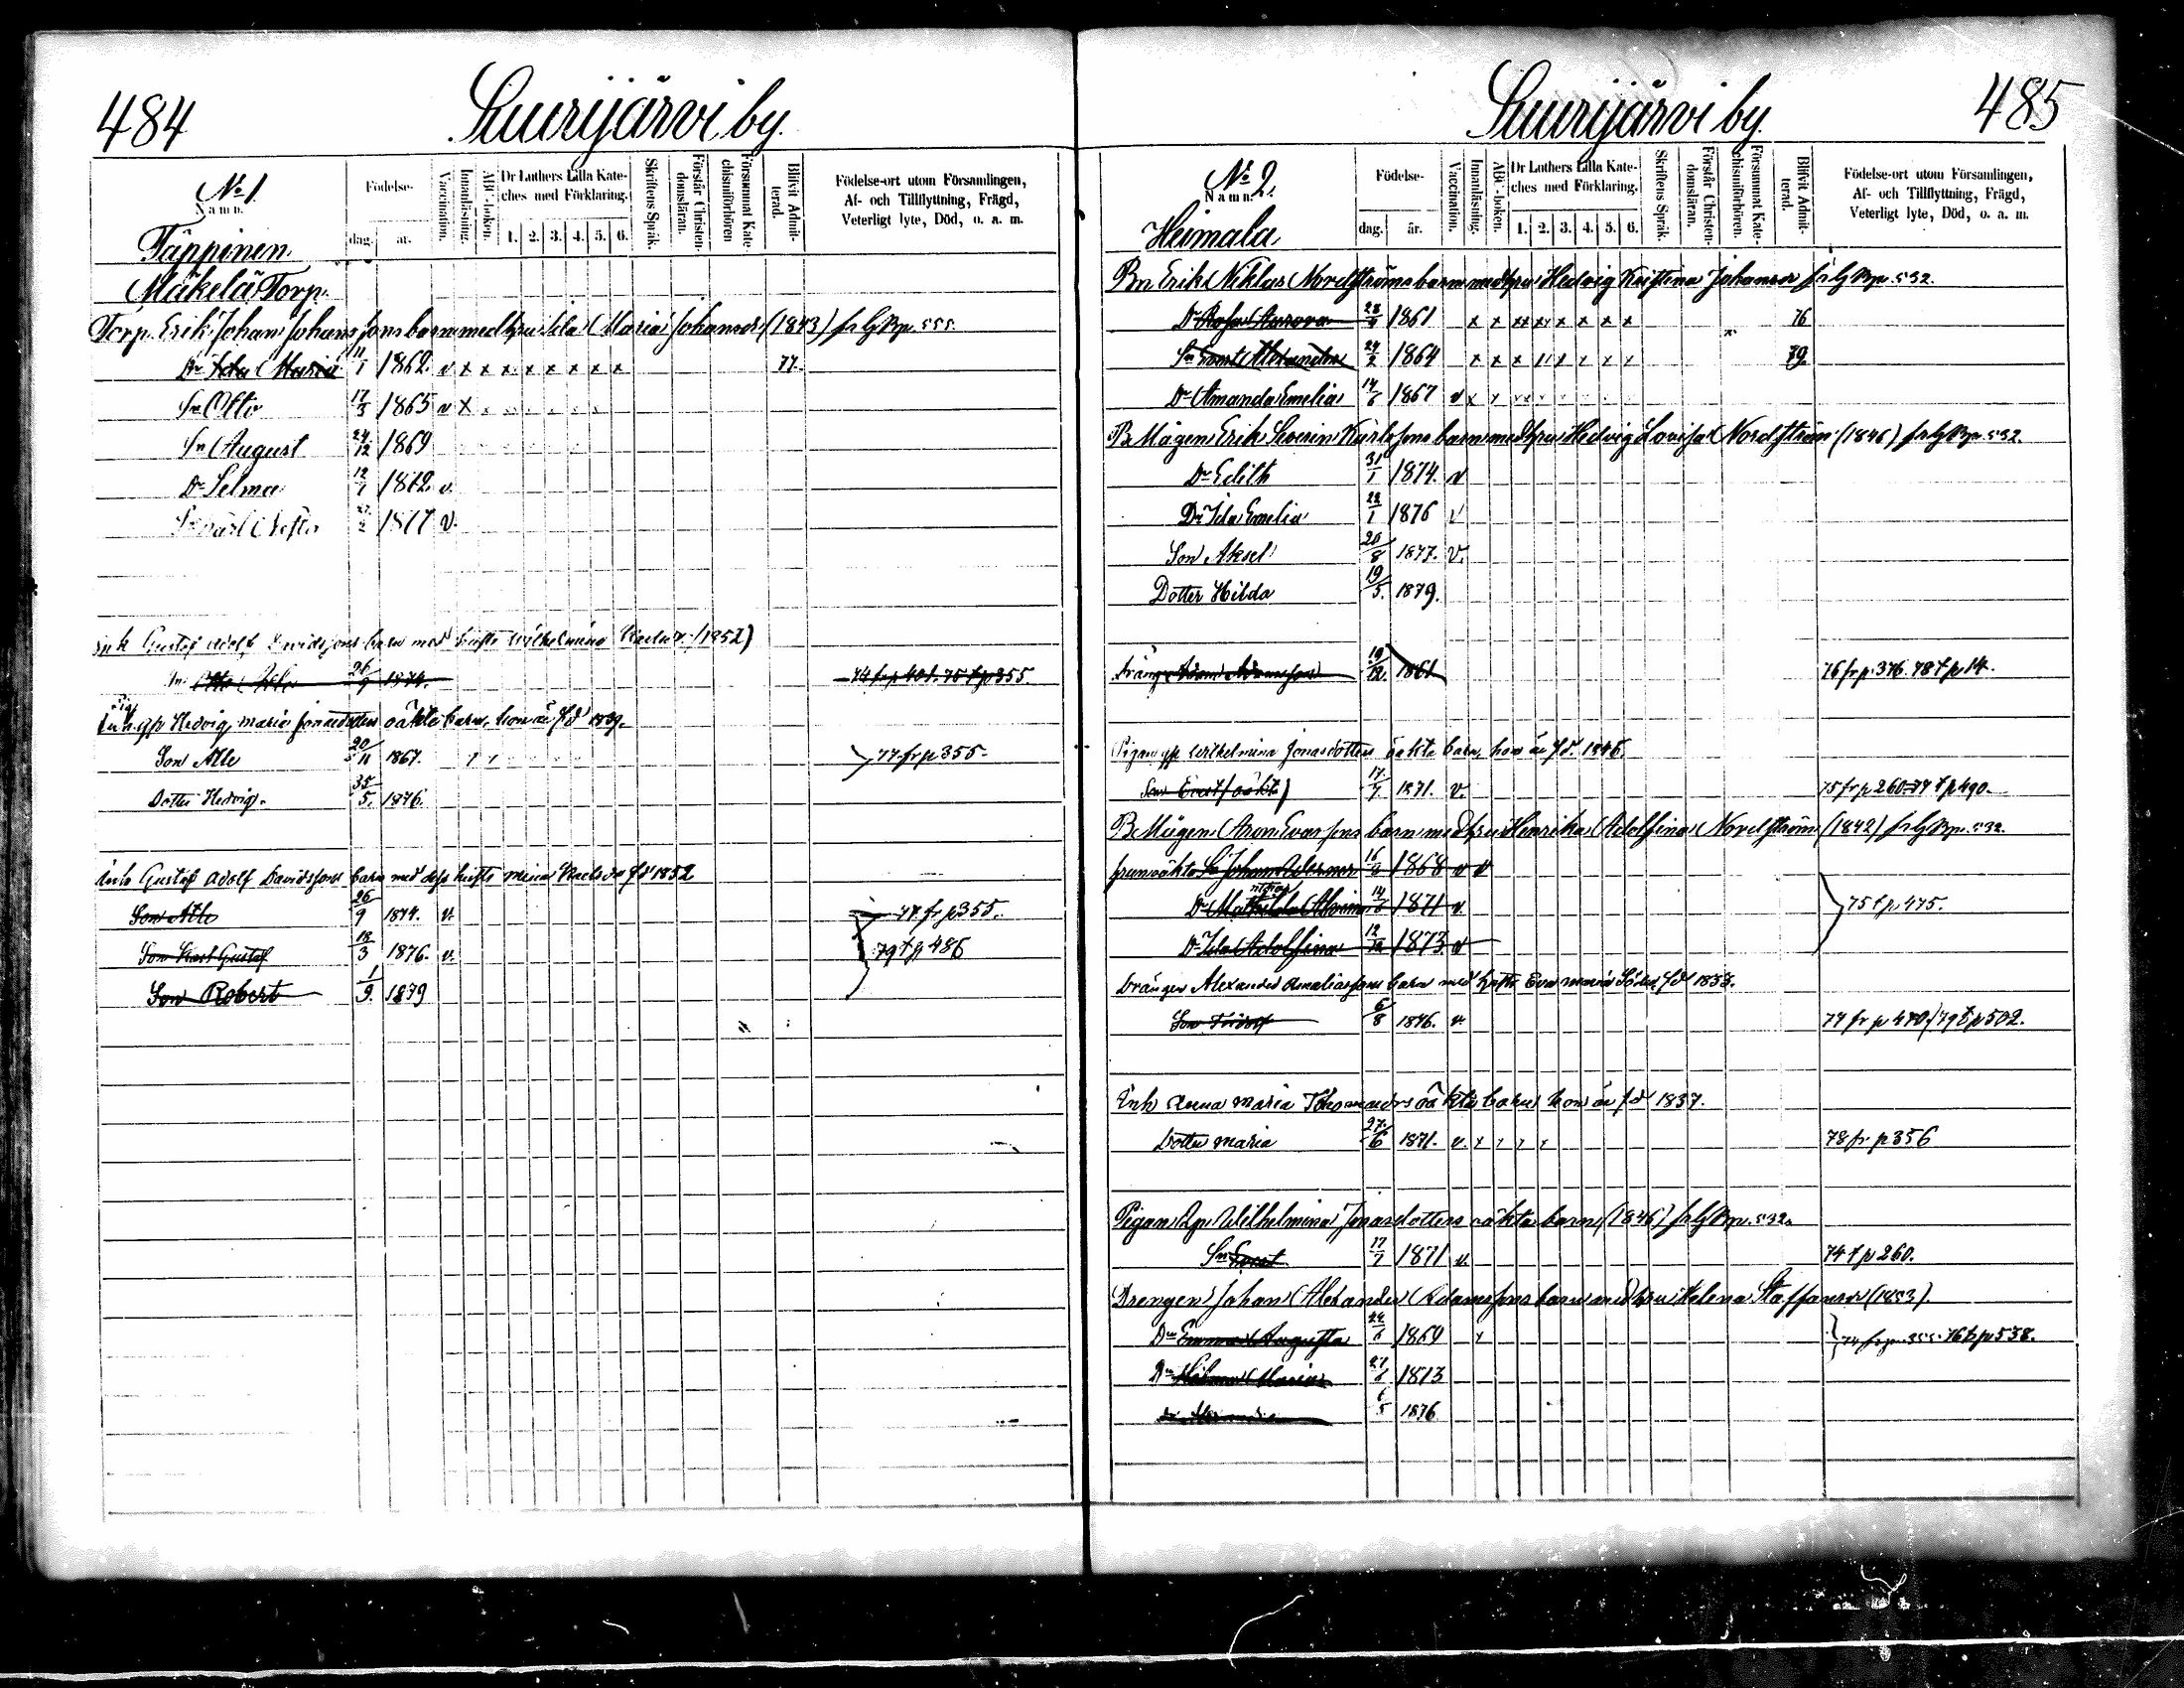 484
Suurijärvi by.
No 1.
Namn.
Födelse-
dag.
år.
Vaccination.
Innanläsning.
ABC-boken.
Dr Luthers Lilla Kateches med Förklaring.
1. 2. 3. 4. 5. 6.
Skriftens Språk.
Förstår Christendomsläran.
Försummat Katechismiförhören
Blifvit Admitterad.
Födelse-ort utom Församlingen,
Af- och Tillflyttning, Frägd,
Veterligt lyte, Död, o. a. m.
Täppinen.
Mäkelä Torp.
Torp. Erik Johan Johanssons barn med hru Ida Maria Johansdr (1843) p. 555.
Dr Ida Maria 11/1 1862. v x x x x x x x x 77.
Sn Otto 17/3 1865 v x
Sn August 24/12 1869
Dr Selma 12/1 1872. v.
Sn Karl 1877 v.
Inh Gustaf Adolf Davidssons barn med hustr Wilhelmina (1852)
26/9 1874. 74 fr p 401. 75 t p 355.
Hedvig Maria Jonasdotters oäkta barn, hon är fd 1839.
Son Alle 20/11 1867. 77 fr p 355.
Dotter Hedvig. 5. 1876.
Inh Gustaf Adolf Davidssons barn med dess hustr Mina fd 1852
Son Atle 26/9 1874. v. 77 fr p 355.
Son Karl Gustaf 18/3 1876. v. 79 t p 486
Son Robert 1/9. 1879
485
Suurijärvi by.
No 2.
Namn.
Födelse-
dag.
år.
Vaccination.
Innanläsning.
ABC-boken.
Dr Luthers Lilla Kateches med Förklaring.
1. 2. 3. 4. 5. 6.
Skriftens Språk.
Förstår Christendomsläran.
Försummat Katechismiförhören.
Blifvit Admitterad.
Födelse-ort utom Församlingen,
Af- och Tillflyttning, Frägd,
Veterligt lyte, Död, o. a. m.
Heimala
Bn Erik Niklas Nordströms barn med hru Hedvig Kristina Johansdr p. 532.
Dr Rosa Aurora 1861 x x xx xx x x x x 76
Sn Evert Alexander 24/2 1864 x x x x x x x x 79.
Dr Amanda Emelia 14/6 1867 v x x
B. Mågen Erik Severin Karlssons barn med hru Hedvig Lovisa Nordström (1846) p. 532.
Dr Edith 31/1 1874. v
Dr Ida Emelia 22/1 1876 v
Son Aksel 20/8 1877. v.
Dotter Hilda 19/5. 1879.
Dräng Adam Adamsson 19/12. 1861 76 fr p. 376. 78 t p 14.
Pigan gp Wilhelmina Jonasdotters oäkta barn, hon är fd. 1846.
Son Ernst (oäkt) 17/7 1871. v. 75 fr p 260 77 t p 490.
B. Mågen Aron Evarssons barn med hru Henrika Adolfina Nordström (1842) p. 532.
Sn Johan Werner 1868 v v
Dr Mathilda Alvina 1871 v 75 t p. 475.
Dr Ida Adolfina 1873 v
Drängen Alexander Amaliassons barn med hustr Eva Maria fd 1853.
Son 6/8 1876. v. 77 fr p 470 / 79 t p 502.
Inh Anna Maria oäkta barn, hon är fd 1837.
Dotter Maria 27/6 1871. v. x x x x 78 fr p 356
Pigan Qp. Wilhelmina Jonasdotters oäkta barn (1846) p. 532.
Sn Ernst 17/7 1871 v. 74 t p 260.
Drengen Johan Alexander Adamssons barn med hru Helena Staffansdr (1853).
Dr Emma Augusta 24/6 1869 x 76 t p 538.
Dr Hilma Maria 1873
5 1876